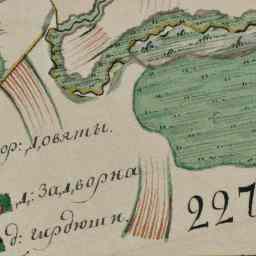 ѳор: довяты.
д: задворна
д: гирдюшк.
227